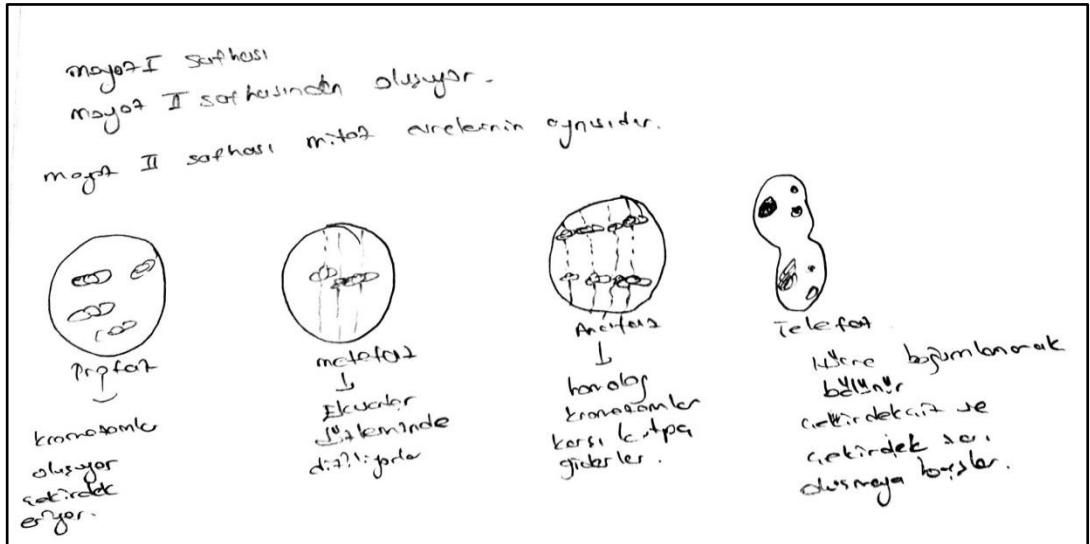 mayoz I safhası
mayoz II safhasından oluşuyor.
mayoz II safhası mitoz evrelerinin aynısıdır.
Profaz
kromozomlar
oluşuyor
çekirdek
eriyor.
metafaz
Ekvator
düzleminde
diziliyorlar
Anafaz
homolog
kromozomlar
karşı kutpa
giderler.
Telefaz
Hücre boğumlanarak
bölünür
çekirdekçik ve
çekirdek zarı
oluşmaya başlar.